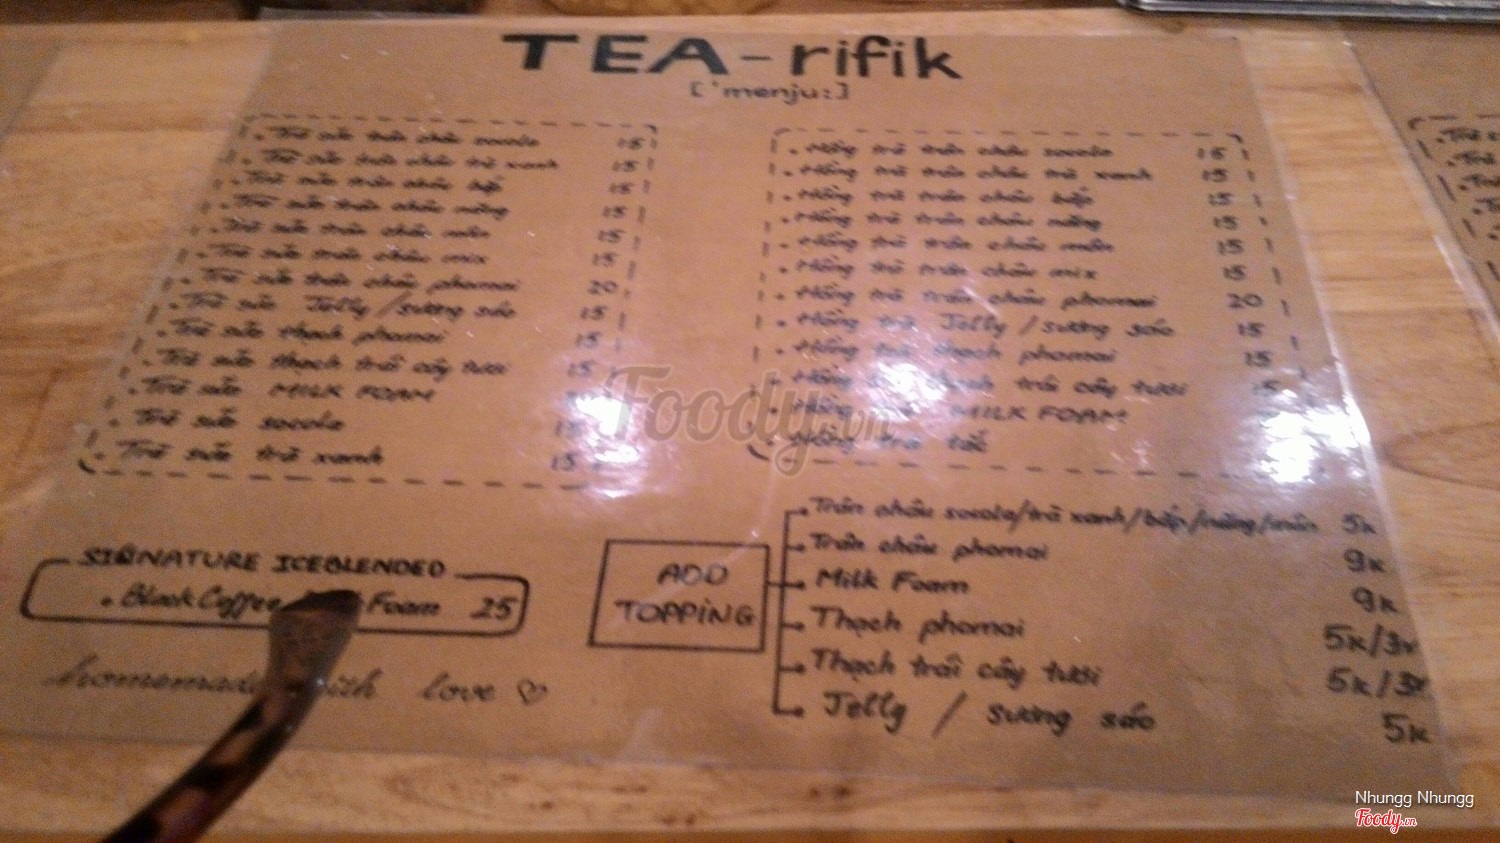 TEA-rifik
['menju:]
• Trà sữa trân châu socola 15
• Trà sữa trân châu trà xanh 15
• Trà sữa trân châu bắp 15
• Trà sữa trân châu năng 15
• Trà sữa trân châu môn 15
• Trà sữa trân châu mix 15
• Trà sữa trân châu phomai 20
• Trà sữa Jelly / sương sáo 15
• Trà sữa thạch phomai 15
• Trà sữa thạch trái cây tươi 15
• Trà sữa MILK FOAM
• Trà sữa socola
• Trà sữa trà xanh 15
• Hồng trà trân châu socola 15
• Hồng trà trân châu trà xanh 15
• Hồng trà trân châu bắp 15
• Hồng trà trân châu năng 15
• Hồng trà trân châu môn 15
• Hồng trà trân châu mix 15
• Hồng trà trân châu phomai 20
• Hồng trà Jelly / sương sáo 15
• Hồng trà thạch phomai 15
• Hồng trà thạch trái cây tươi 15
• Hồng MILK FOAM
• Hồng trà tắc
SIGNATURE ICEBLENDED
• Black Coffee Foam 25
homemade with love
ADD
TOPPING
Trân châu socola/trà xanh/bắp/năng/môn 5k
Trân châu phomai 9k
Milk Foam 9k
Thạch phomai 5k/3k
Thạch trái cây tươi 5k/3k
Jelly / sương sáo 5k
Foody.vn
Nhungg Nhungg
Foody.vn